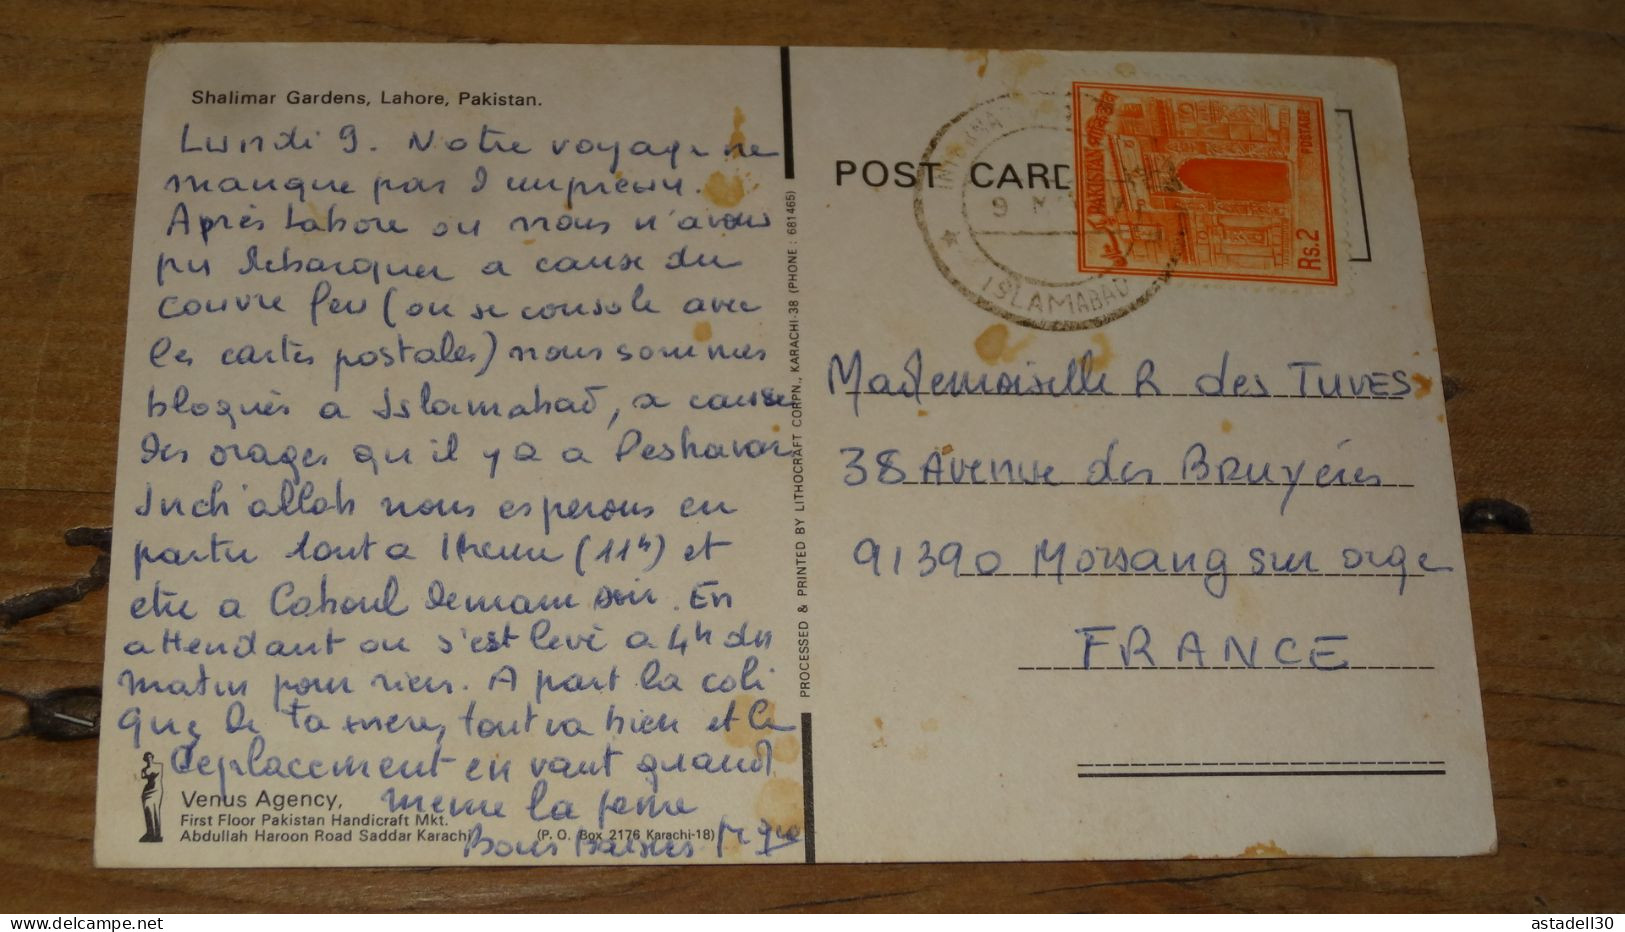 Shalimar Gardens, Lahore, Pakistan.
Lundi 9. Notre voyage ne
manque pas d'imprévu.
Après Lahore ou nous n'avons
pu debarquer a cause du
couvre feu (on se console avec
les cartes postales) nous sommes
bloqués a Islamabad, a cause
des orages qu'il y a a Peshavar
Inch'allah nous esperons en
partir tout a l'heure (11h) et
etre a Caboul demain soir. En
attendant on s'est levé a 4h du
matin pour rien. A part la coli
que de ta mere, tout va bien et le
deplacement en vaut quand
meme la peine
Bons Baisers
Venus Agency,
First Floor Pakistan Handicraft Mkt.
Abdullah Haroon Road Saddar Karachi
(P. O. Box 2176 Karachi-18)
PROCESSED & PRINTED BY LITHOCRAFT CORPN., KARACHI-38 (PHONE : 681465)
POST CARD
9
ISLAMABAD
PAKISTAN
POSTAGE
Rs.2
Mademoiselle R des TUVES
38 Avenue des BRUyéres
91390 Morsang sur orge
FRANCE
astadell30